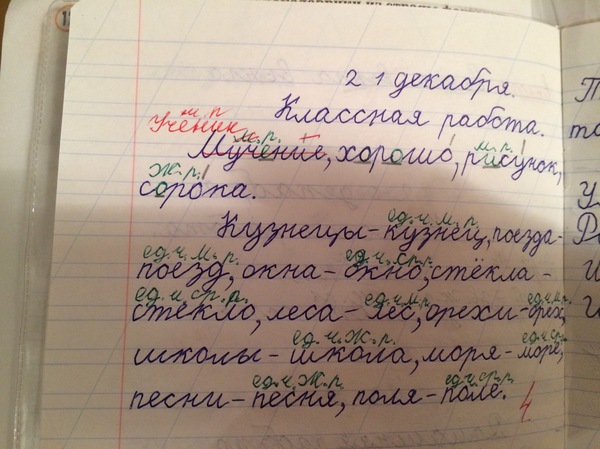 21 декабря.
Классная работа.
м. р.
Ученик
м. р. м. р.
Мучение, хорошо, рисунок,
ж. р.
сорока.
ед. ч. м. р.
Кузнецы - кузнец, поезда-
ед. ч. м. р. ед. ч. ср. р.
поезд, окна - окно, стёкла -
ед. ч. ср. р. ед. ч. м. р. ед. ч. м. р.
стекло, леса - лес, орехи - орех,
ед. ч. ж. р. ед. ч. ср. р.
школы - школа, моря - море,
ед. ч. ж. р. ед. ч. ср. р.
песни - песня, поля - поле.
4